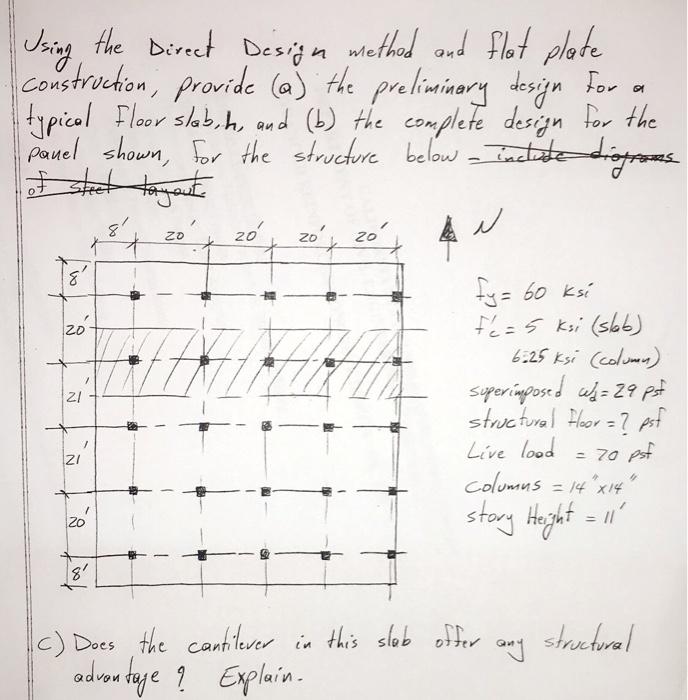 Using the Direct Design method and flat plate
construction, provide (a) the preliminary design for a
typical floor slab, h, and (b) the complete design for the
panel shown, for the structure below - include diagrams
of steel layout.
8' 20' 20' 20' 20'
N
8'
20'
21'
21'
20'
8'
fy = 60 ksi
f'c = 5 ksi (slab)
6.25 ksi (column)
superimposed wd = 29 psf
structural floor = ? psf
Live load = 70 psf
Columns = 14" x 14"
story Height = 11'
c) Does the cantilever in this slab offer any structural
advantage ? Explain.